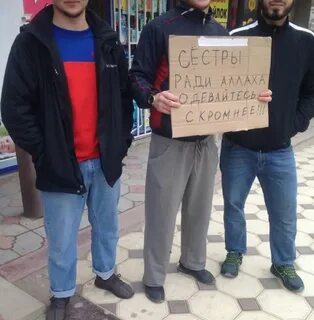 СЁСТРЫ
РАДИ АЛЛАХА
ОДЕВАЙТЕСЬ
СКРОМНЕЕ!!!